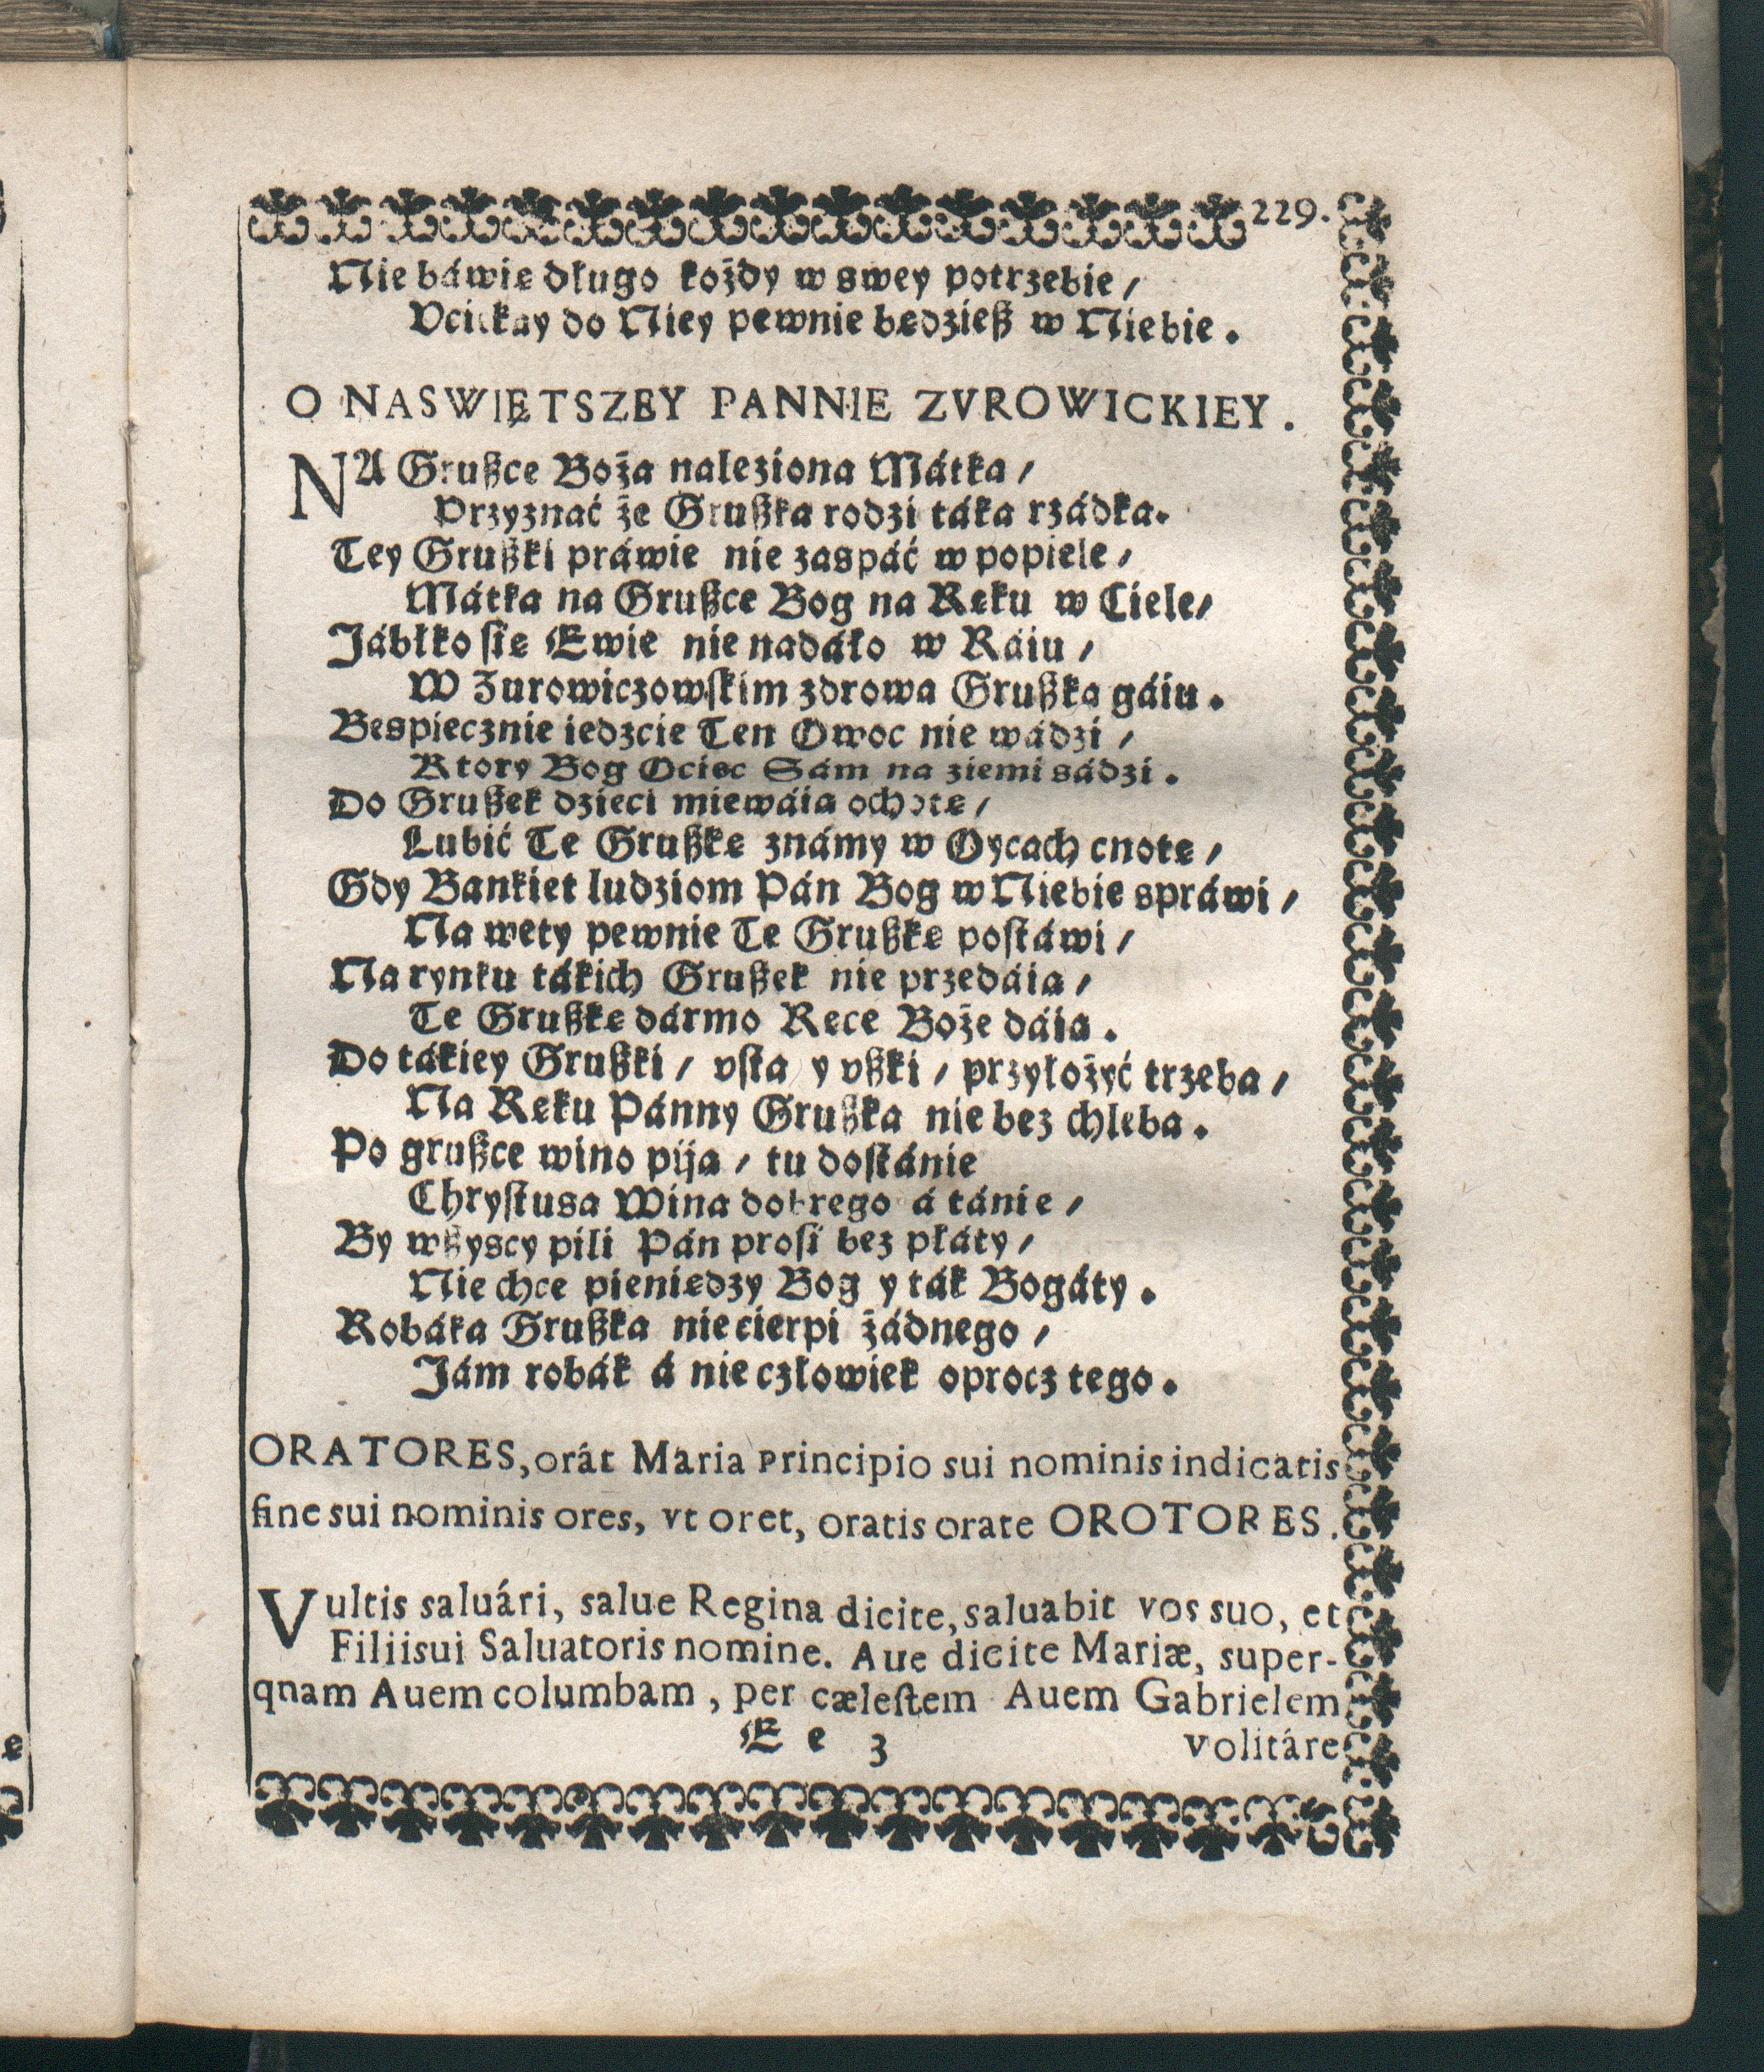 229.
Nie báwię długo kożdy w swey potrzebie /
Vciekay do Niey pewnie będzieß w Niebie .
O NASWIĘTSZEY PANNIE ZVROWICKIEY .
NA Grußce Boża naleziona Mátka /
Przyznać że Grußka rodzi táka rzádka.
Tey Grußki práwie nie zaspáć w popiele /
Mátka na Grußce Bog na Ręku w Ciele /
Jábłko się Ewie nie nadáło w Ráiu /
W Zurowiczowskim zdrowa Grußka gáiu .
Bespiecznie iedzcie Ten Owoc nie wádzi /
Ktory Bog Ociec Sám na ziemi sádzi .
Do Grußek dzieci miewáią ochotę /
Lubić Tę Grußkę známy w Oycach cnotę /
Gdy Bankiet ludziom Pán Bog w Niebie spráwi /
Na wety pewnie Tę Grußkę postáwi /
Na rynku tákich Grußek nie przedáią /
Tę Grußkę dármo Ręce Boże dáią .
Do tákiey Grußki / vsta y vßki / przyłożyć trzeba /
Na Ręku Pánny Grußka nie bez chleba .
Po grußce wino piją / tu dostánie
Chrystusa Wina dobrego á tánie /
By wßyscy pili Pán prosi bez płáty /
Nie chce pieniędzy Bog y ták Bogáty .
Robáka Grußka nie cierpi żádnego /
Jám robák á nie człowiek oprocz tego .
ORATORES, orát Maria principio sui nominis indicatis
fine sui nominis ores, vt oret, oratis orate OROTORES.
Vultis saluári, salue Regina dicite, saluabit vos suo, et
Filii sui Saluatoris nomine. Aue dicite Mariæ, super-
quam Auem columbam , per cælestem Auem Gabrielem
E e 3 volitáre